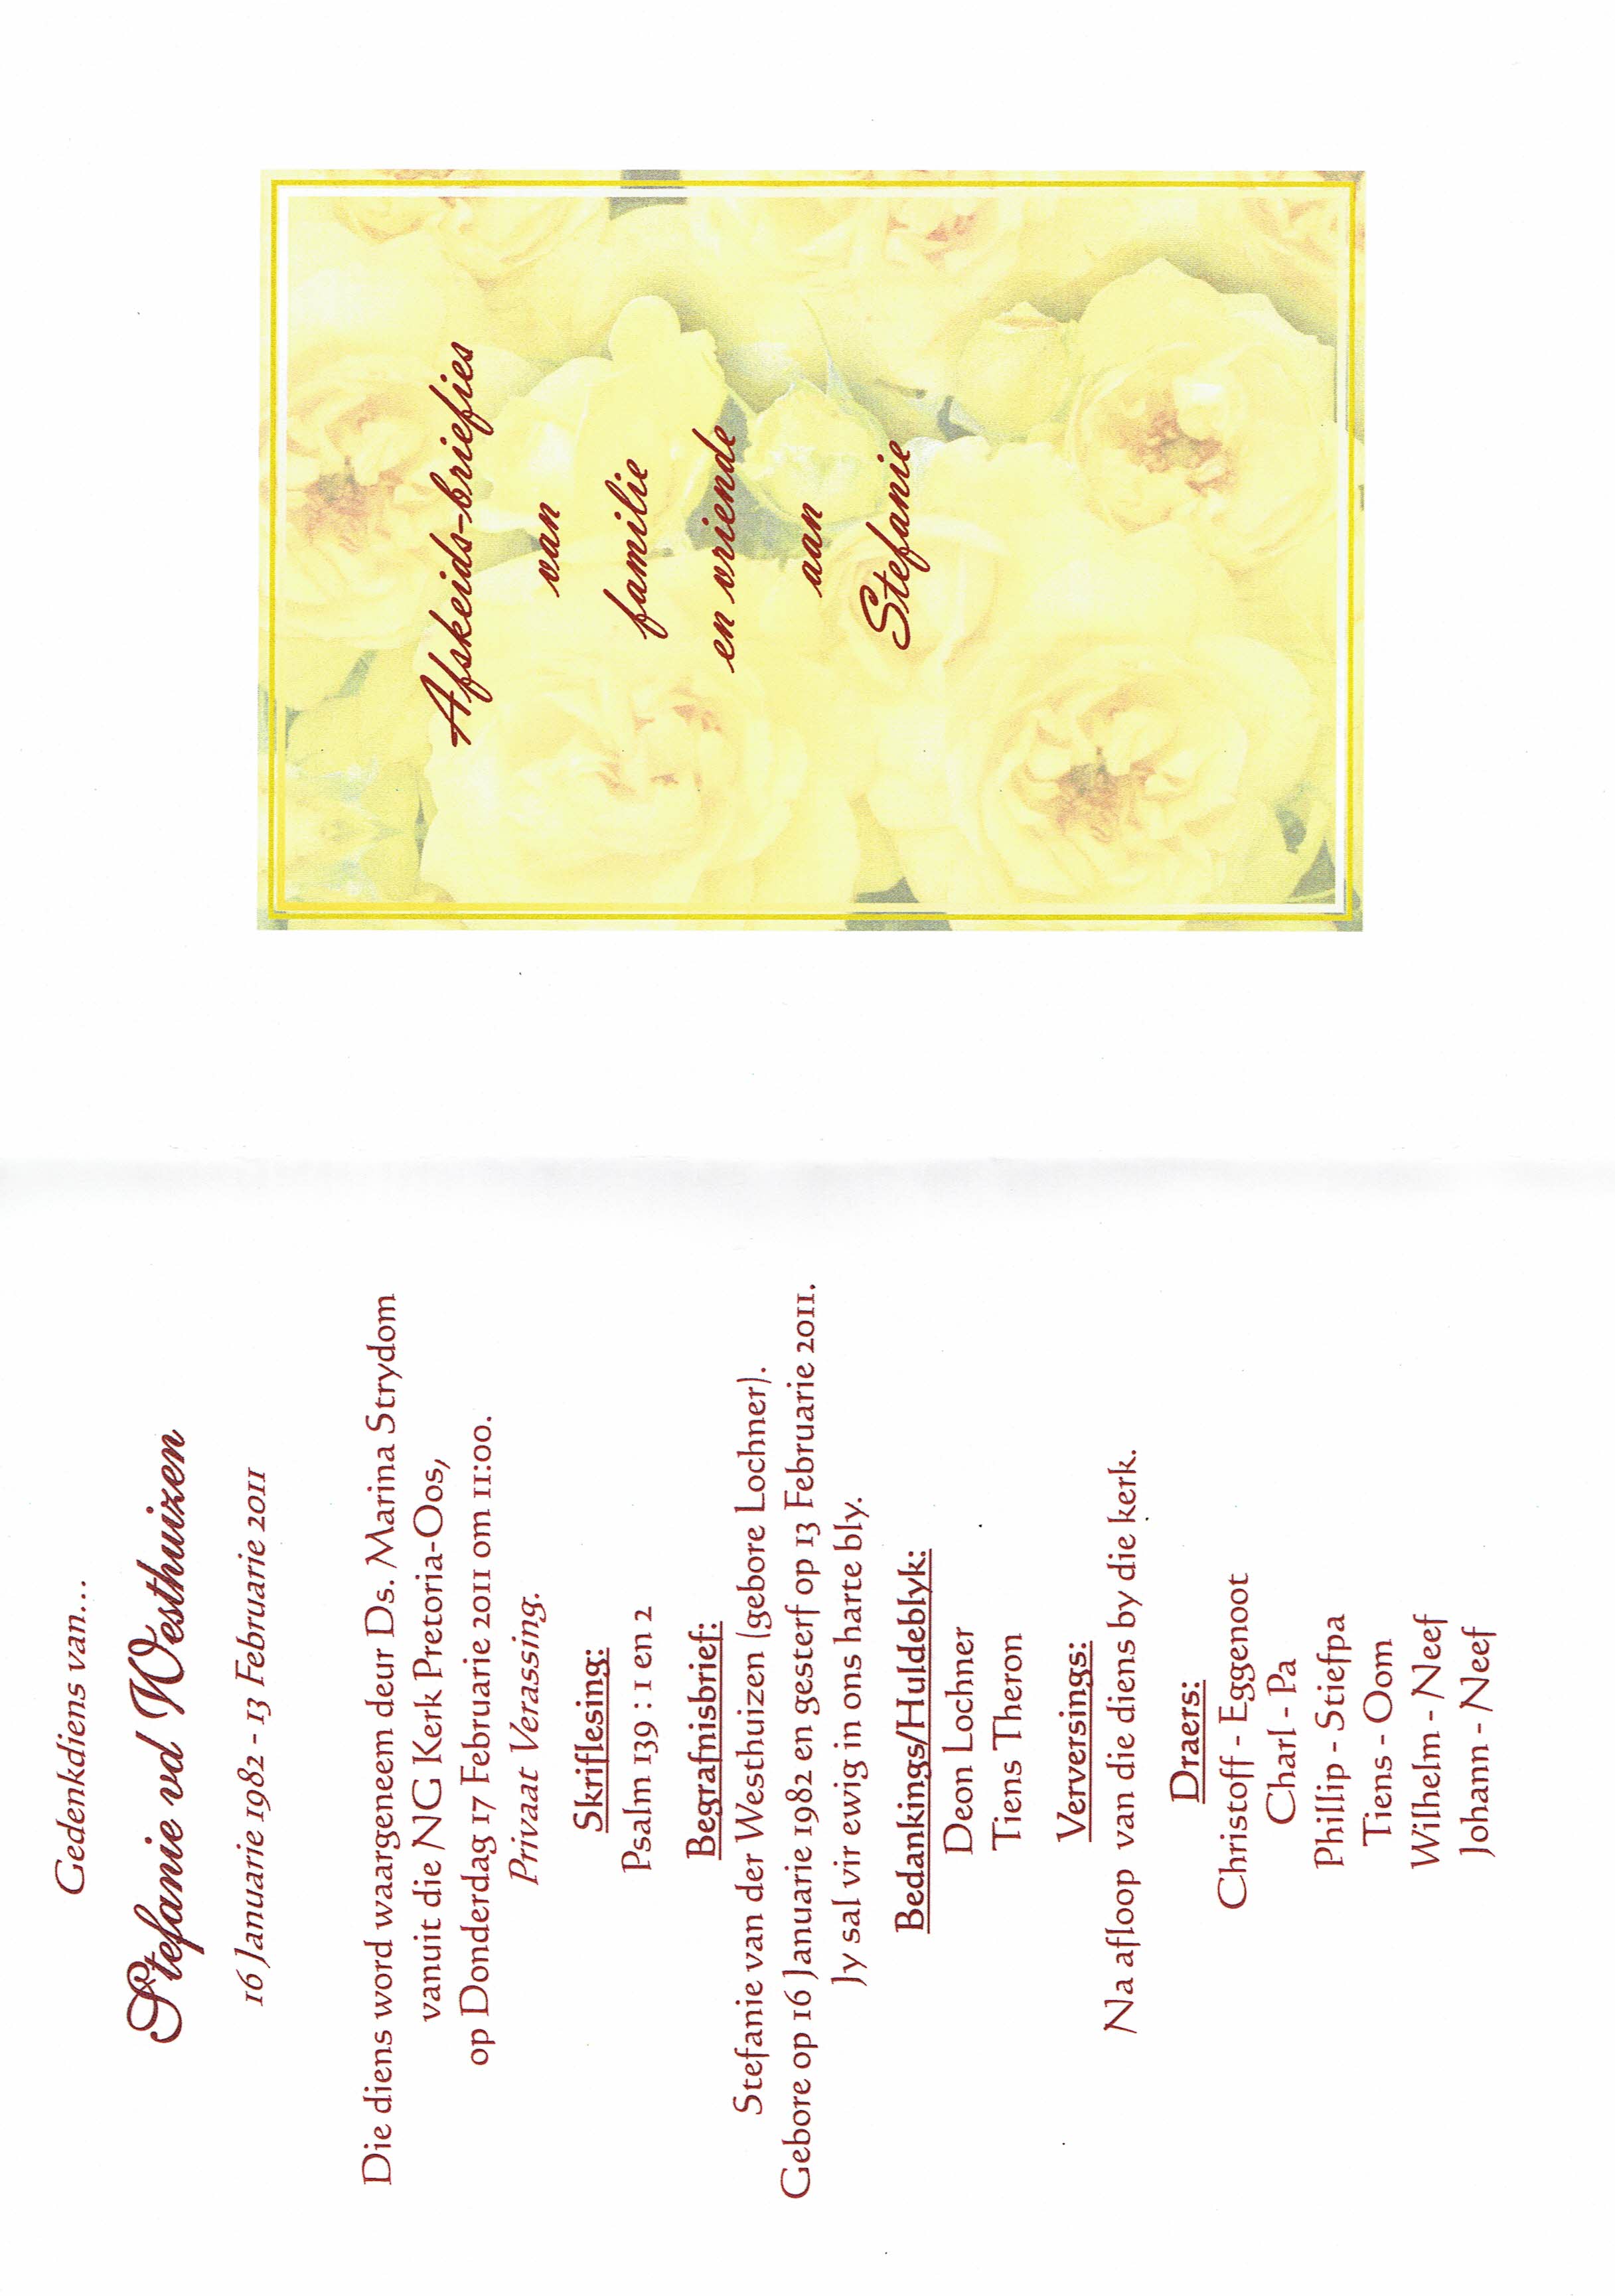 Gedenkdiens van...
Stefanie vd Westhuizen
16 Januarie 1982 - 13 Februarie 2011
Die diens word waargeneem deur Ds. Marina Strydom
vanuit die NG Kerk Pretoria-Oos,
op Donderdag 17 Februarie 2011 om 11:00.
Privaat Verassing.
Skriflesing:
Psalm 139 : 1 en 2
Begrafnisbrief:
Stefanie van der Westhuizen (gebore Lochner).
Gebore op 16 Januarie 1982 en gesterf op 13 Februarie 2011.
Jy sal vir ewig in ons harte bly.
Bedankings/Huldeblyk:
Deon Lochner
Tiens Theron
Verversings:
Na afloop van die diens by die kerk.
Draers:
Christoff - Eggenoot
Charl - Pa
Phillip - Stiefpa
Tiens - Oom
Wilhelm - Neef
Johann - Neef
Afskeids-briefies
van
familie
en vriende
aan
Stefanie